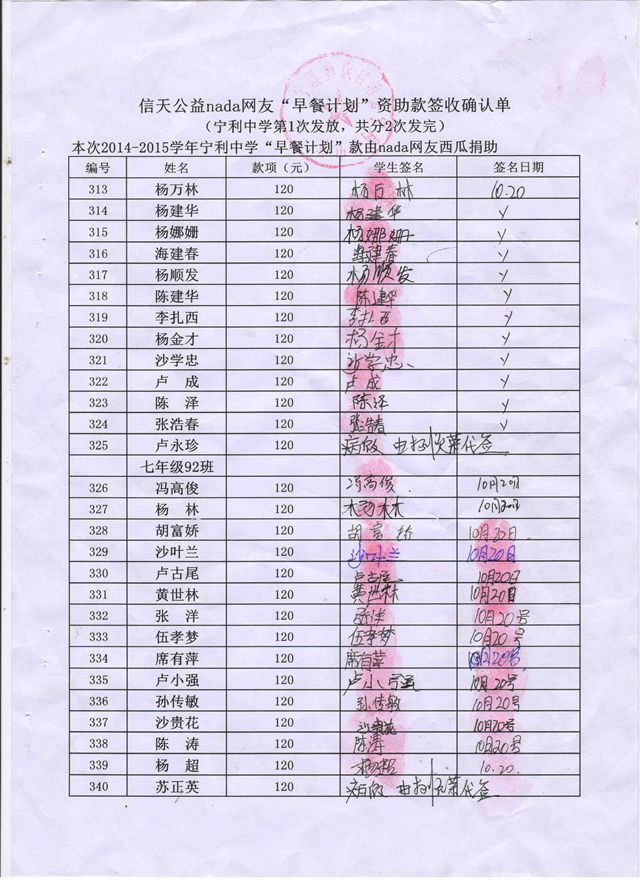 信天公益nada网友“早餐计划”资助款签收确认单
（宁利中学第1次发放，共分2次发完）
本次2014-2015学年宁利中学“早餐计划”款由nada网友西瓜捐助
编号 姓名 款项（元） 学生签名 签名日期
313 杨万林 120 杨万林 10.20
314 杨建华 120 杨建华 y
315 杨娜姗 120 杨娜姗 y
316 海建春 120 海建春 y
317 杨顺发 120 杨顺发 y
318 陈建华 120 陈建华 y
319 李扎西 120 李扎西 y
320 杨金才 120 杨金才 y
321 沙学忠 120 沙学忠 y
322 卢 成 120 卢成 y
323 陈 泽 120 陈泽 y
324 张浩春 120 张浩春 y
325 卢永珍 120 病假 由 代签
七年级92班
326 冯高俊 120 冯高俊 10月20日
327 杨 林 120 杨林 10月20日
328 胡富娇 120 胡富娇 10月20日
329 沙叶兰 120 沙叶兰 10月20日
330 卢古尾 120 卢古尾 10月20日
331 黄世林 120 黄世林 10月20日
332 张 洋 120 张洋 10月20号
333 伍孝梦 120 伍孝梦 10月20号
334 席有萍 120 席有萍 10月20号
335 卢小强 120 卢小强 10月20号
336 孙传敏 120 孙传敏 10月20号
337 沙贵花 120 沙贵花 10月20号
338 陈 涛 120 陈涛 10月20号
339 杨 超 120 杨超 10.20.
340 苏正英 120 病假 由 代签